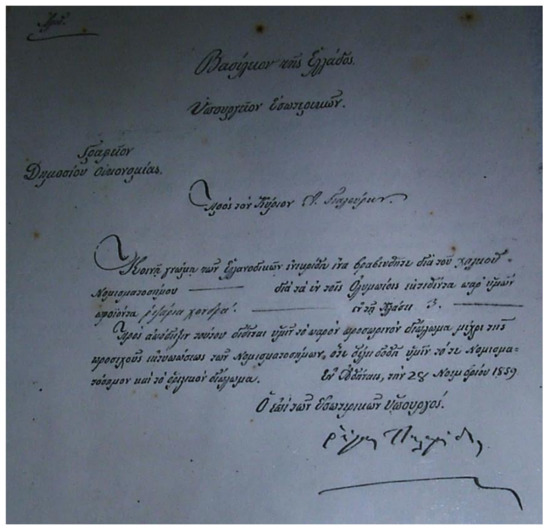 Ἀριθ.
Βασίλειον τῆς Ἑλλάδος.
Ὑπουργεῖον Ἐσωτερικῶν.
Γραφεῖον
Δημοσίου Οἰκονομίας.
Πρὸς τὸν Κύριον
Κοινῇ γνώμῃ τῶν Ἑλλανοδικῶν ἐνεκρίθη ἵνα βραβευθῆτε διὰ τοῦ χαλκοῦ
Νομισματοσήμου διὰ τὰ ἐν τοῖς Ὀλυμπίοις ἐκτεθέντα παρ' ὑμῶν
προϊόντα ἐν τῇ Κλάσει 3.
Πρὸς ἀπόδειξιν τούτου δίδεται ὑμῖν τὸ παρὸν προσωρινὸν δίπλωμα μέχρι τῆς
προσεχοῦς ἐκτυπώσεως τῶν Νομισματοσήμων, ὅτε θέλει δοθῆ ὑμῖν τό τε Νομισμα-
τόσημον καὶ τὸ δίπλωμα. Ἐν Ἀθήναις, τὴν 28 Νοεμβρίου 1859
Ὁ ἐπὶ τῶν Ἐσωτερικῶν Ὑπουργός.